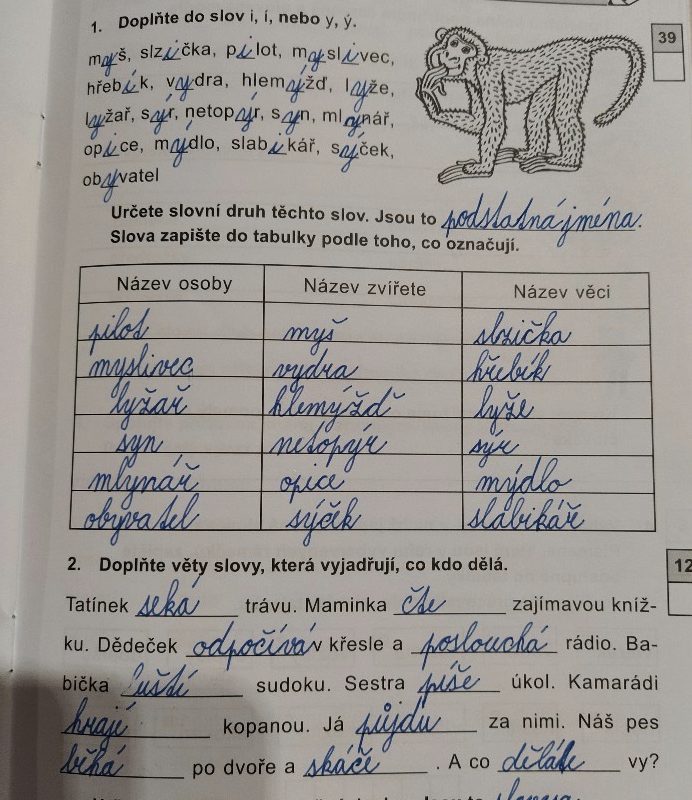 1. Doplňte do slov i, í, nebo y, ý.
39
myš, slzička, pilot, myslivec,
hřebík, vydra, hlemýžď, lyže,
lyžař, sýr, netopýr, syn, mlynář,
opice, mýdlo, slabikář, sýček,
obyvatel
Určete slovní druh těchto slov. Jsou to podstatná jména.
Slova zapište do tabulky podle toho, co označují.
Název osoby Název zvířete Název věci
pilot myš slzička
myslivec vydra hřebík
lyžař hlemýžď lyže
syn netopýr sýr
mlynář opice mýdlo
obyvatel sýček slabikář
2. Doplňte věty slovy, která vyjadřují, co kdo dělá.
12
Tatínek seká trávu. Maminka čte zajímavou kníž-
ku. Dědeček odpočívá v křesle a poslouchá rádio. Ba-
bička luští sudoku. Sestra píše úkol. Kamarádi
hrají kopanou. Já půjdu za nimi. Náš pes
běhá po dvoře a skáče. A co děláte vy?